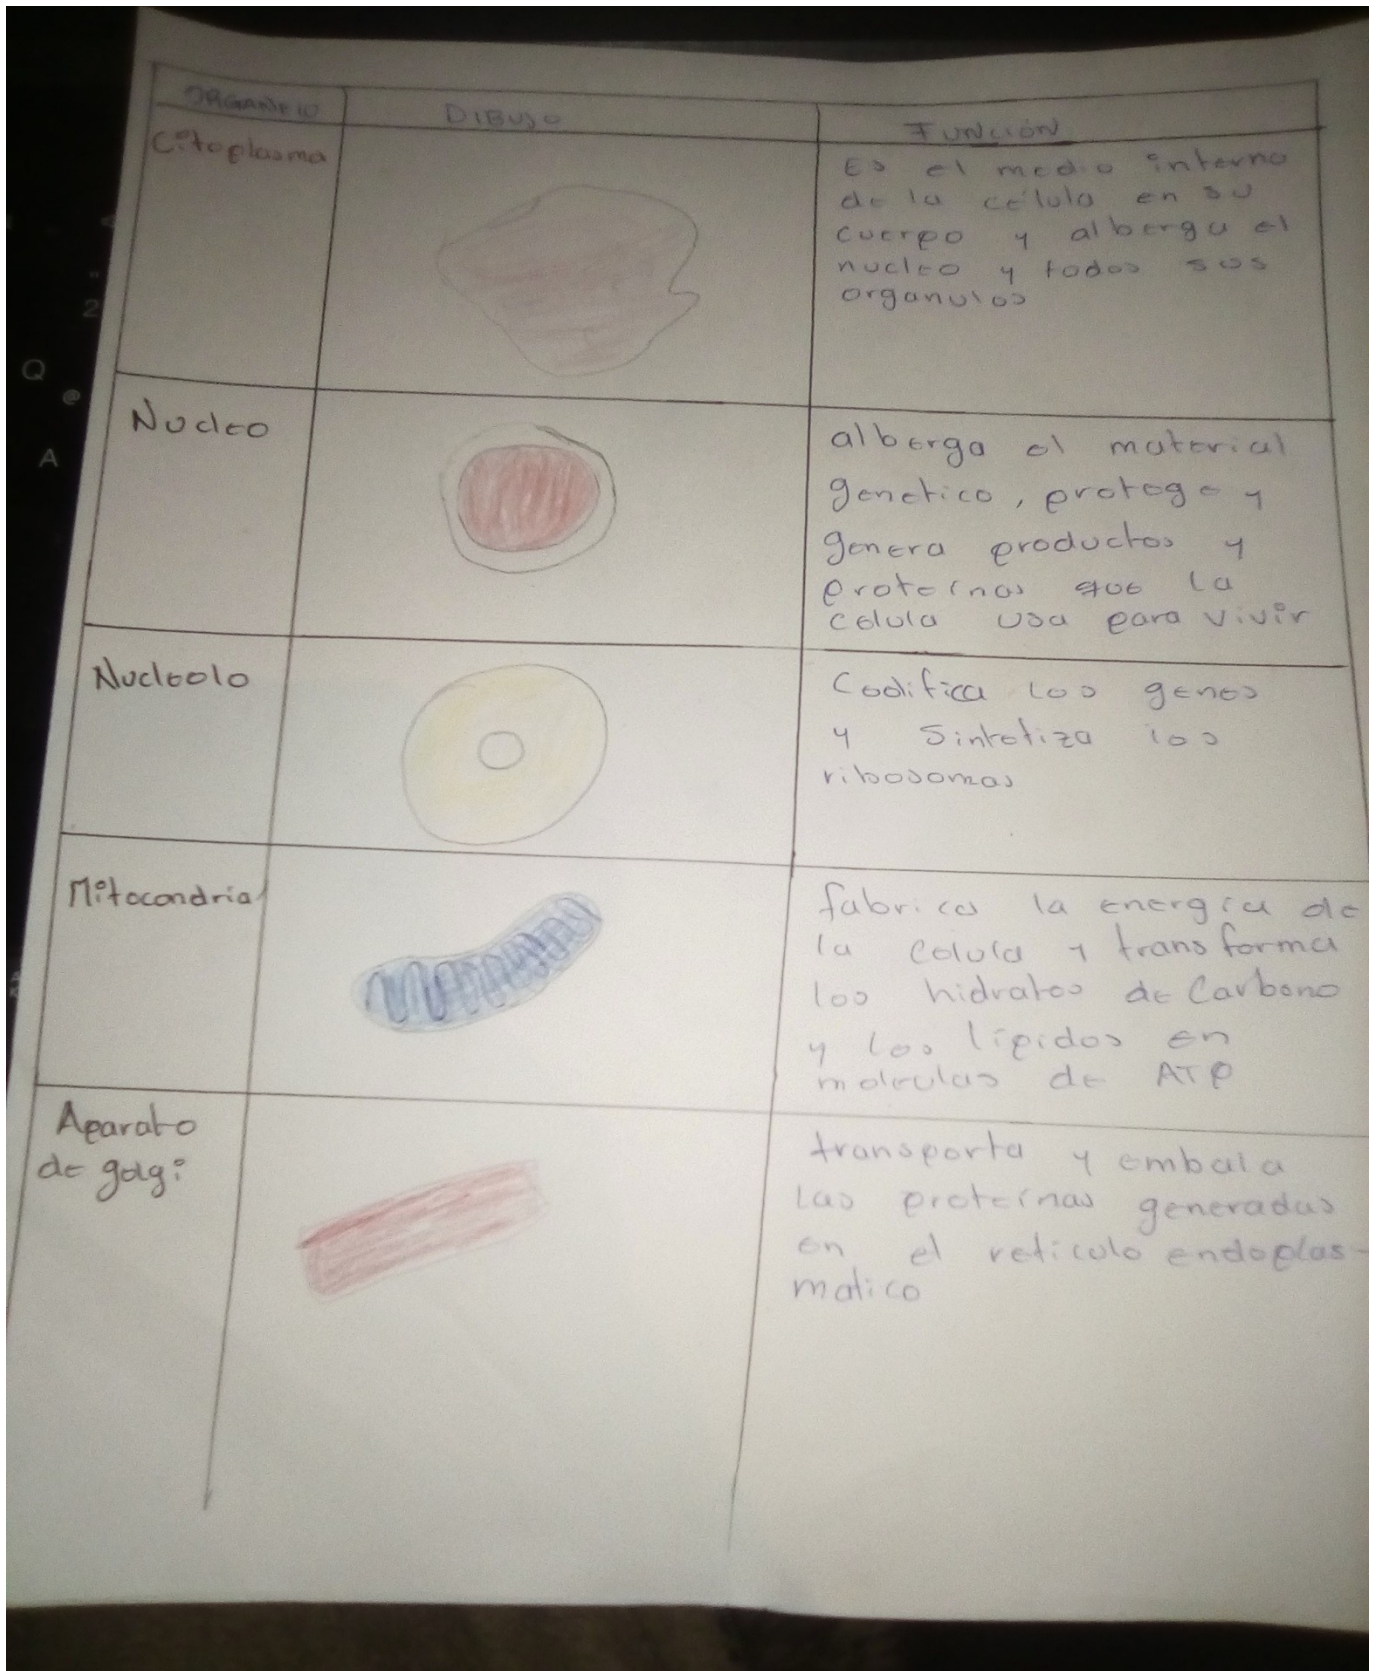 ORGANELO DIBUJO FUNCIÓN
Citoplasma
Es el medio interno
de la célula en su
cuerpo y alberga el
nucleo y todos sus
organulos
Nucleo
alberga el material
genetico, protege y
genera productos y
proteínas que la
celula usa para vivir
Nucleolo
Codifica los genes
y sintetiza los
ribosomas
Mitocondria
fabrica la energía de
la celula y transforma
los hidratos de Carbono
y los lípidos en
moleculas de ATP
Aparato
de golgi
transporta y embala
las proteínas generadas
en el reticulo endoplas-
matico
2
Q
@
A